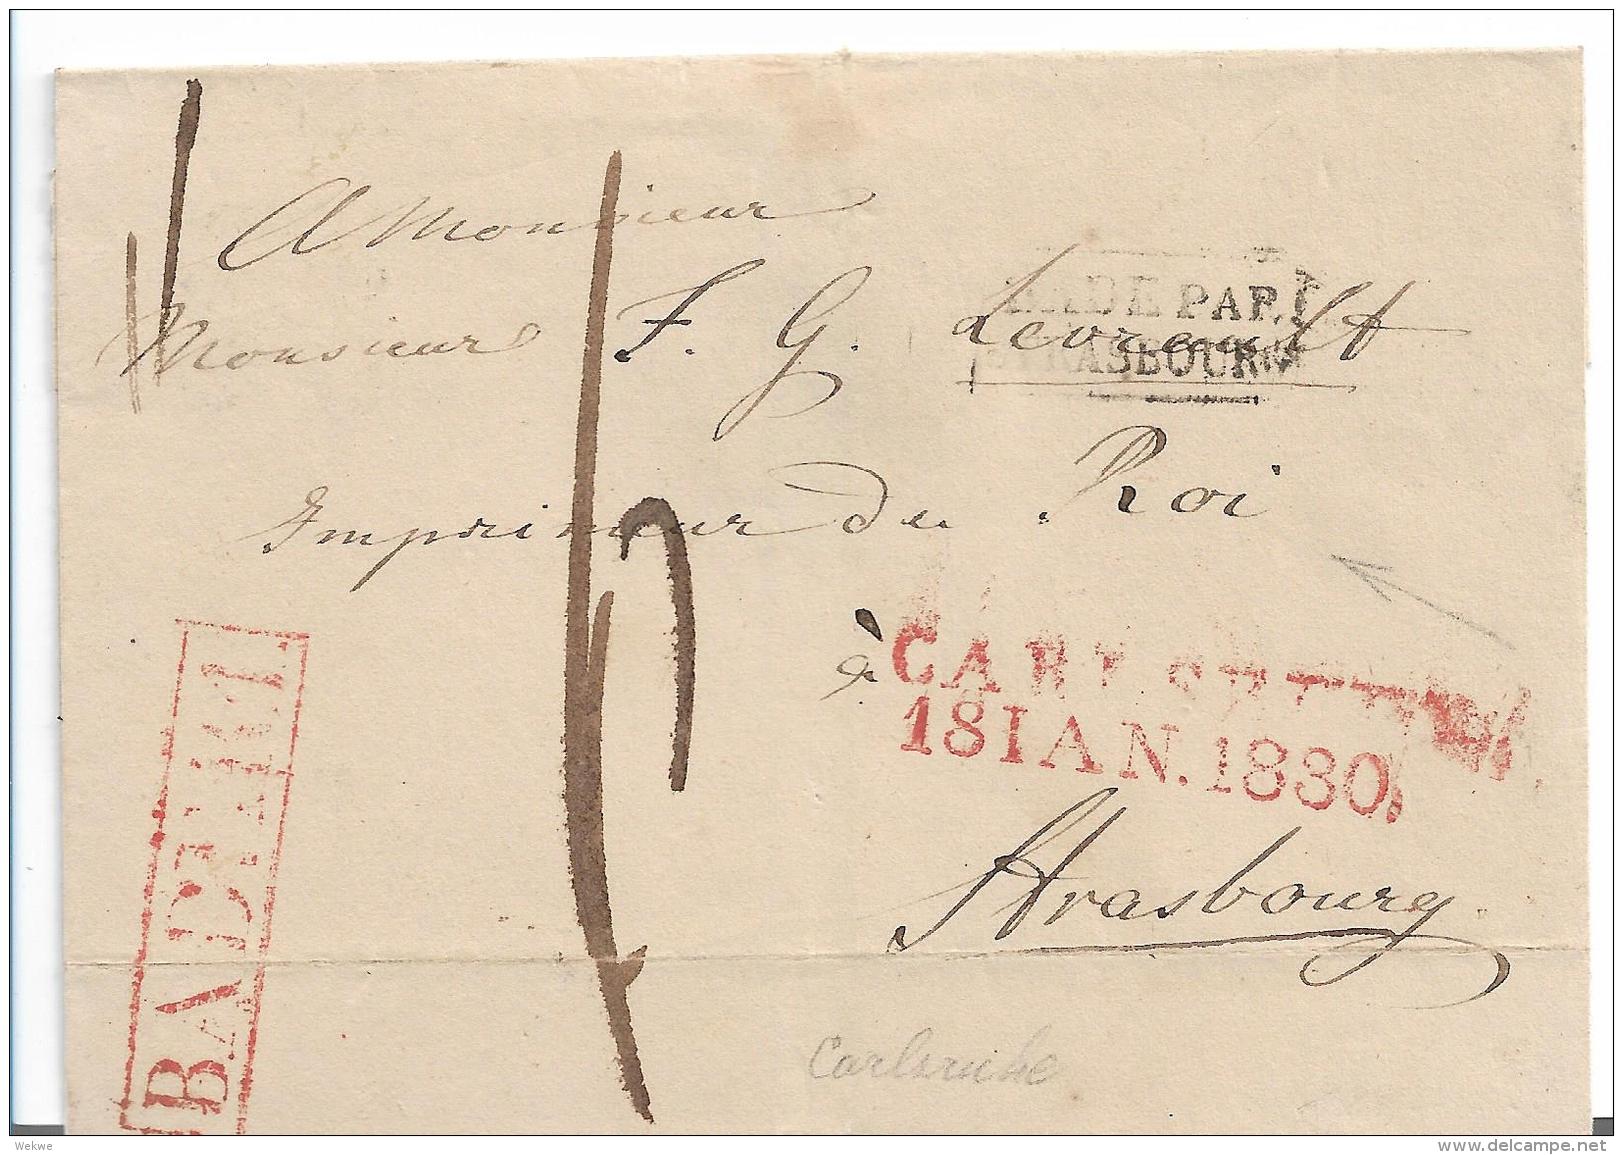 A Monsieur
Monsieur F. G. Levrault
Imprimeur du Roi
à
Strasbourg
DE PAR
STRASBOURG
CARLSRUHE
18 IAN. 1830.
BADE
Carlsruhe
Wekwe
www.delcampe.net